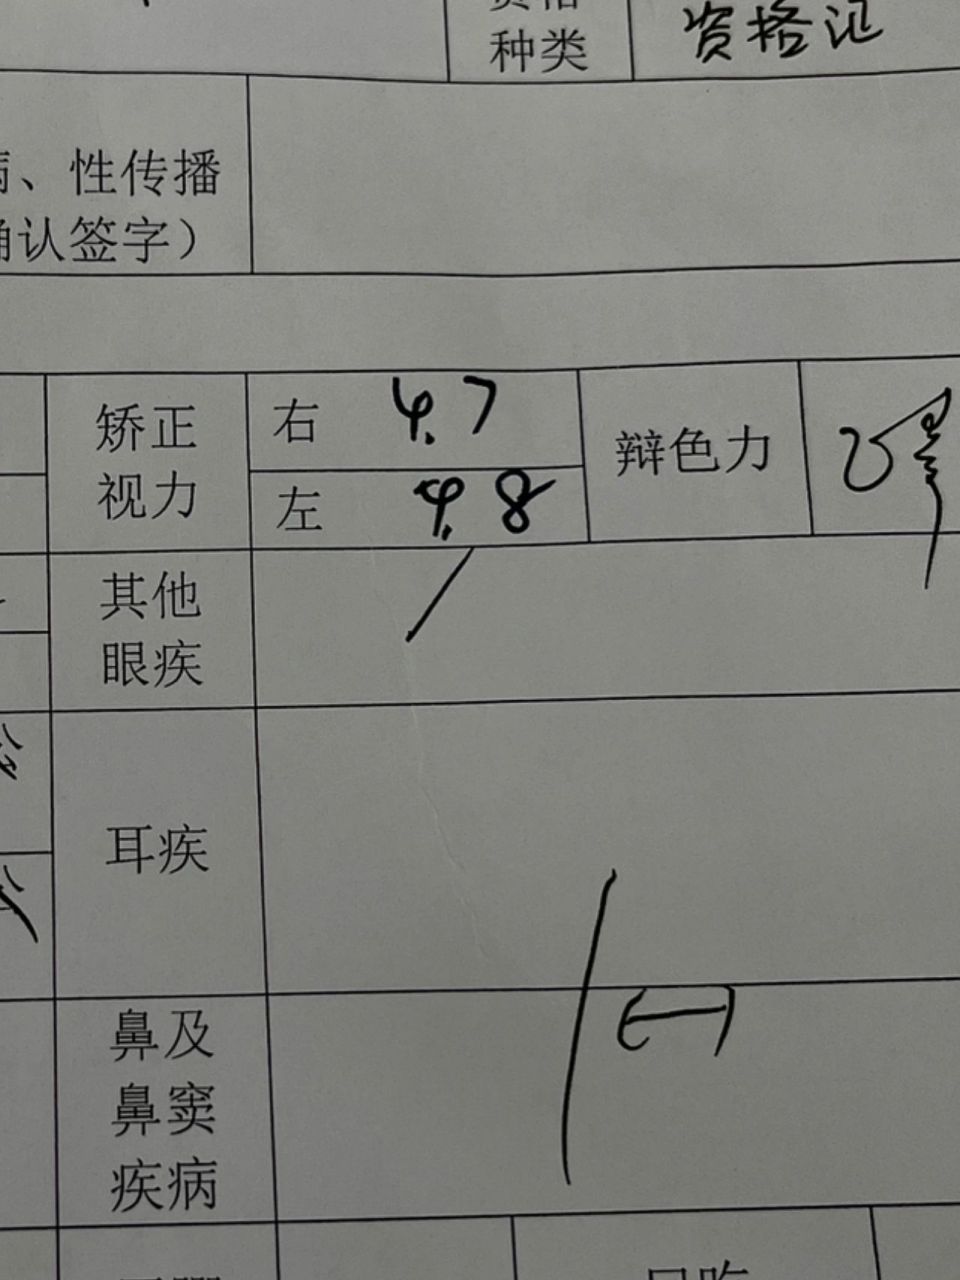 种类 资格证
、性传播
认签字）
矫正
视力
右 4.7
左 4.8
辩色力
其他
眼疾
耳疾
(一)
鼻及
鼻窦
疾病